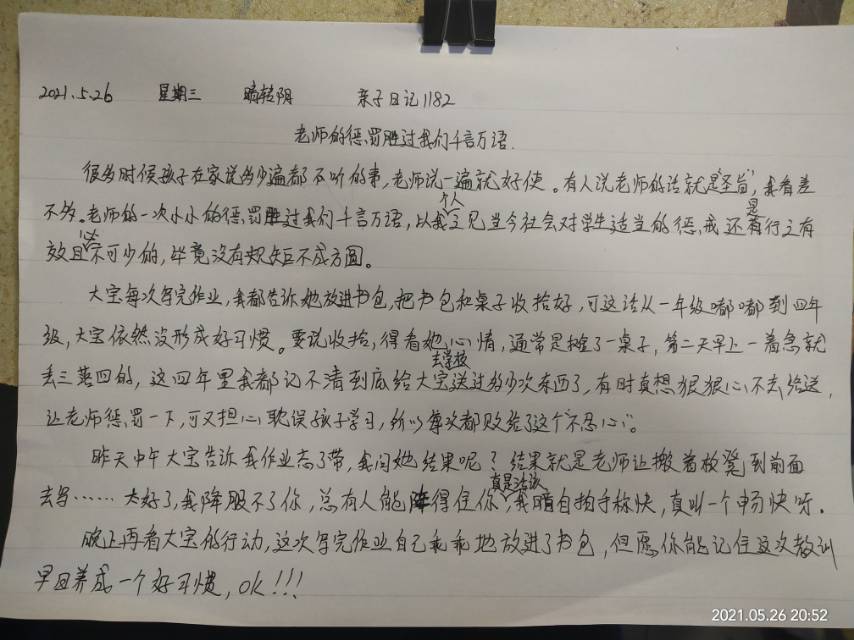 2021.5.26 星期三 晴转阴 亲子日记1182
老师的惩罚胜过我们千言万语.
很多时候孩子在家说多少遍都不听的事,老师说一遍就好使。有人说老师的话就是"圣旨",我看差
不多。老师的一次小小的惩罚胜过我们千言万语,以我个人之见当今社会对学生适当的惩戒还是行之有
效且必不可少的,毕竟没有规矩不成方圆。
大宝每次写完作业,我都告诉她放进书包,把书包和桌子收拾好,可这话从一年级嘟嘟到四年
级,大宝依然没形成好习惯。要说收拾,得看她心情,通常是摊了一桌子,第二天早上一着急就
丢三落四的,这四年里我都记不清到底给大宝去学校送过多少次东西了,有时真想狠狠心不去给送,
让老师惩罚一下,可又担心耽误孩子学习,所以每次都败给了这个"不忍心"。
昨天中午大宝告诉我作业忘了带,我问她结果呢?结果就是老师让搬着板凳到前面
去写……太好了,我降服不了你,总有人能降得住你,真是活该,我暗自拍手称快,真叫一个畅快呀.
晚上再看大宝的行动,这次写完作业自己乖乖地放进了书包,但愿你能记住这次教训
早日养成一个好习惯,ok!!!
2021.05.26 20:52